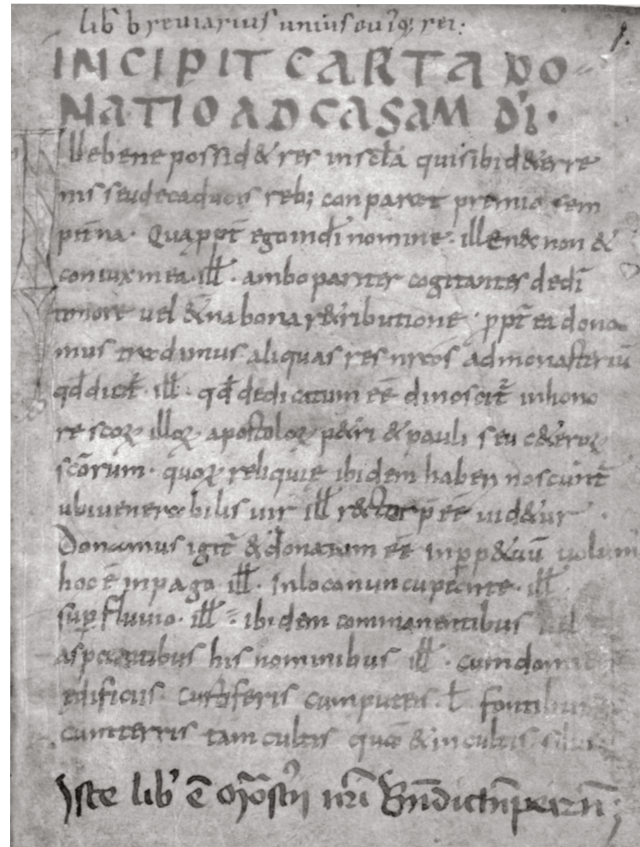 lib breviarius uniuscuiq; rei:
INCIPIT CARTA DO
NATIO AD CASAM DI.
Ille bene possid& res in scła quisibi d& erre
nis seu decaducis reb; conparat premia sem
pitna. Quappt ego in di nomine. ill en& non &
coniux mea. ill. ambo pariter cogitantes de di
timore uel &erna bona r&ributione. ppt ea dona
mus tradimus aliquas res nras ad monasteriū
qd dicit. ill. qd dedicatum eē dinoscit in hono
re scoꝝ illoꝝ apostoloꝝ p&ri & pauli seu c&eroꝝ
scōrum. quoꝝ reliquie ibidem haben noscunt
ubi uenerabilis uir ill rector p eē uid&ur
Donamus igit & donatum eē in pp&uū uolum
hoc ē in pago. ill. In loca nuncupante. ill
sup fluuio. ill. ibidem commanentibus uel
aspicientibus his nominibus ill. cum dom
edificiis curtiferis cum puteis. ł fontibus
cum terris tam cultis quā & incultis silu
Iste lib' ē mōstij nri Bndicti